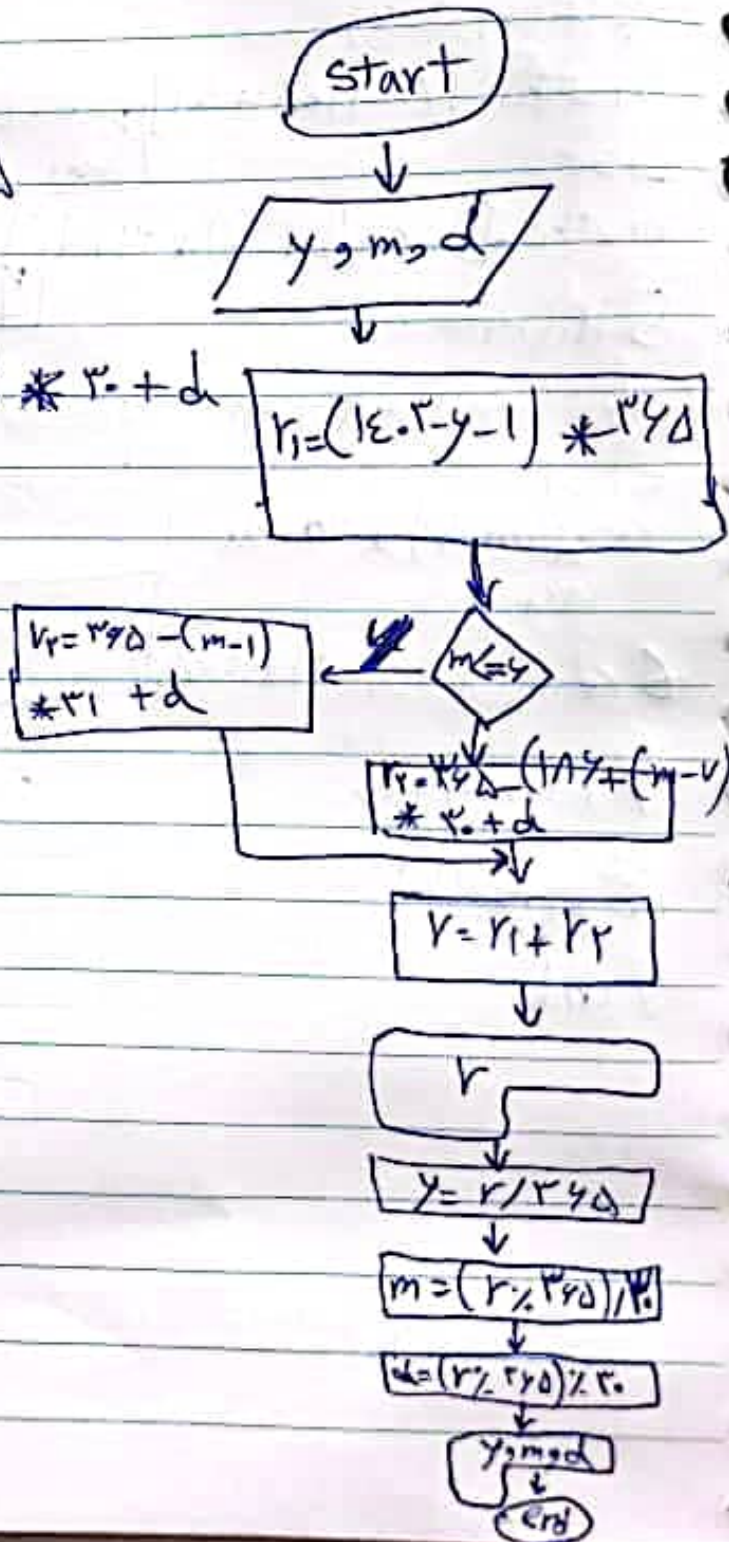 start
y, m, d
* ۳۰ + d
r₁=(۱۴۰۳-y-۱) * ۳۶۵
m<=۶
r۲=۳۶۵-(m-۱)
*۳۱ + d
r۲=۳۶۵-(۱۸۶+(m-۷)
* ۳۰+d
r=r۱+r۲
r
y=r/۳۶۵
m=(r%۳۶۵)/۳۰
d=(r%۳۶۵)%۳۰
y,m,d
end